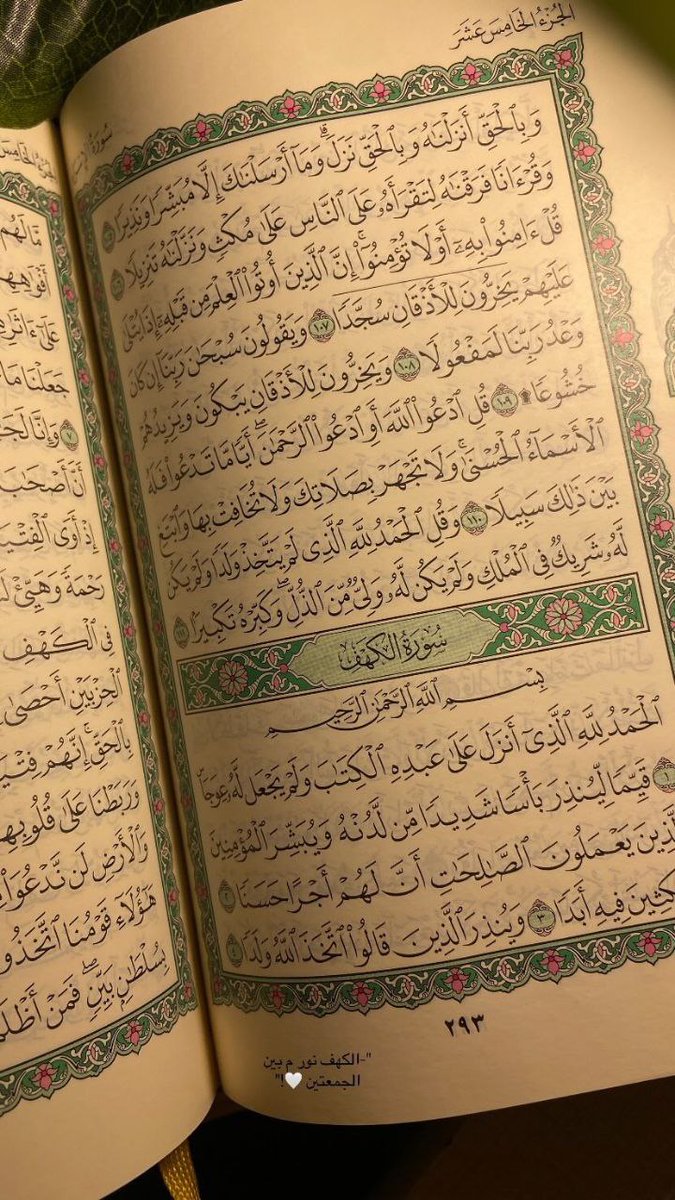 الجزء الخامس عشر
سورة
وَبِٱلْحَقِّ أَنزَلْنَٰهُ وَبِٱلْحَقِّ نَزَلَ ۗ وَمَآ أَرْسَلْنَٰكَ إِلَّا مُبَشِّرًا وَنَذِيرًا
وَقُرْءَانًا فَرَقْنَٰهُ لِتَقْرَأَهُۥ عَلَى ٱلنَّاسِ عَلَىٰ مُكْثٍ وَنَزَّلْنَٰهُ تَنزِيلًا
قُلْ ءَامِنُوا۟ بِهِۦٓ أَوْ لَا تُؤْمِنُوٓا۟ ۚ إِنَّ ٱلَّذِينَ أُوتُوا۟ ٱلْعِلْمَ مِن قَبْلِهِۦٓ إِذَا يُتْلَىٰ
عَلَيْهِمْ يَخِرُّونَ لِلْأَذْقَانِ سُجَّدًا ١٠٧ وَيَقُولُونَ سُبْحَٰنَ رَبِّنَآ إِن كَانَ
وَعْدُ رَبِّنَا لَمَفْعُولًا ١٠٨ وَيَخِرُّونَ لِلْأَذْقَانِ يَبْكُونَ وَيَزِيدُهُمْ
خُشُوعًا ۩ ١٠٩ قُلِ ٱدْعُوا۟ ٱللَّهَ أَوِ ٱدْعُوا۟ ٱلرَّحْمَٰنَ ۖ أَيًّا مَّا تَدْعُوا۟ فَلَهُ
ٱلْأَسْمَآءُ ٱلْحُسْنَىٰ ۚ وَلَا تَجْهَرْ بِصَلَاتِكَ وَلَا تُخَافِتْ بِهَا وَٱبْتَغِ
بَيْنَ ذَٰلِكَ سَبِيلًا ١١٠ وَقُلِ ٱلْحَمْدُ لِلَّهِ ٱلَّذِى لَمْ يَتَّخِذْ وَلَدًا وَلَمْ يَكُن
لَّهُۥ شَرِيكٌ فِى ٱلْمُلْكِ وَلَمْ يَكُن لَّهُۥ وَلِىٌّ مِّنَ ٱلذُّلِّ ۖ وَكَبِّرْهُ تَكْبِيرًۢا ١١١
سُورَةُ الكَهْفِ
بِسْمِ ٱللَّهِ ٱلرَّحْمَٰنِ ٱلرَّحِيمِ
ٱلْحَمْدُ لِلَّهِ ٱلَّذِىٓ أَنزَلَ عَلَىٰ عَبْدِهِ ٱلْكِتَٰبَ وَلَمْ يَجْعَل لَّهُۥ عِوَجَاۜ
١ قَيِّمًا لِّيُنذِرَ بَأْسًا شَدِيدًا مِّن لَّدُنْهُ وَيُبَشِّرَ ٱلْمُؤْمِنِينَ
ٱلَّذِينَ يَعْمَلُونَ ٱلصَّٰلِحَٰتِ أَنَّ لَهُمْ أَجْرًا حَسَنًا ٢
مَّٰكِثِينَ فِيهِ أَبَدًا ٣ وَيُنذِرَ ٱلَّذِينَ قَالُوا۟ ٱتَّخَذَ ٱللَّهُ وَلَدًا ٤
٢٩٣
"-الكهف نور م بين
الجمعتين 🤍!"
مَّا لَهُم
أَفْوَٰهِهِمْ
عَلَىٰٓ ءَاثَٰرِهِمْ
جَعَلْنَا مَا
٧ وَإِنَّا لَجَٰعِلُونَ
أَنَّ أَصْحَٰبَ
إِذْ أَوَى ٱلْفِتْيَةُ
رَحْمَةً وَهَيِّئْ لَنَا
فِى ٱلْكَهْفِ
ٱلْحِزْبَيْنِ أَحْصَىٰ
بِٱلْحَقِّ ۚ إِنَّهُمْ فِتْيَةٌ
وَرَبَطْنَا عَلَىٰ قُلُوبِهِمْ
وَٱلْأَرْضِ لَن نَّدْعُوَا۟
هَٰٓؤُلَآءِ قَوْمُنَا ٱتَّخَذُوا۟
بِسُلْطَٰنٍۭ بَيِّنٍ ۖ فَمَنْ أَظْلَمُ